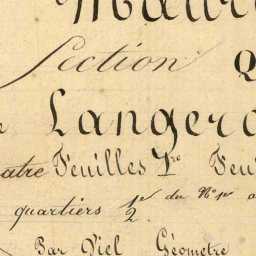 Section Q
Langero
atre Feuilles 1re Feu
quartiers 1/2. du No 1er a
Par Viel Géomètre